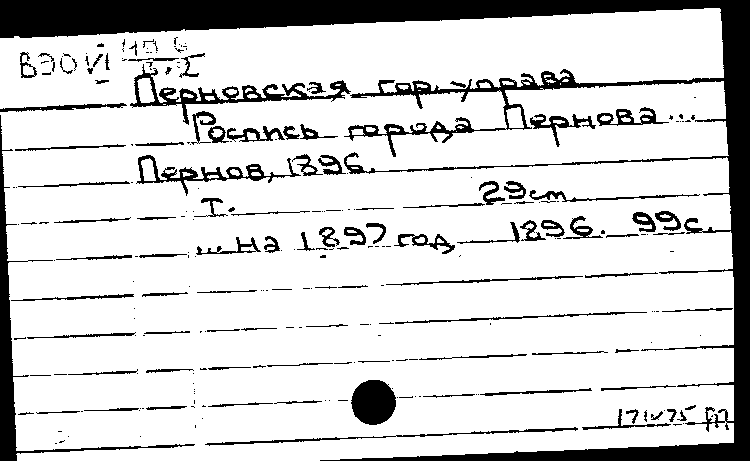 ВЭО VI 110 6
В.2
Перновская гор. управа
Роспись города Пернова...
Пернов, 1896.
т. 29cm.
... на 1897 год 1896. 99с.